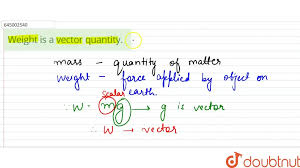 645002540
Weight is a vector quantity.
mass - quantity of matter
Weight - force applied by object on
earth.
scalar
∴ W = mg → g is vector
∴ W → vector
doubtnut